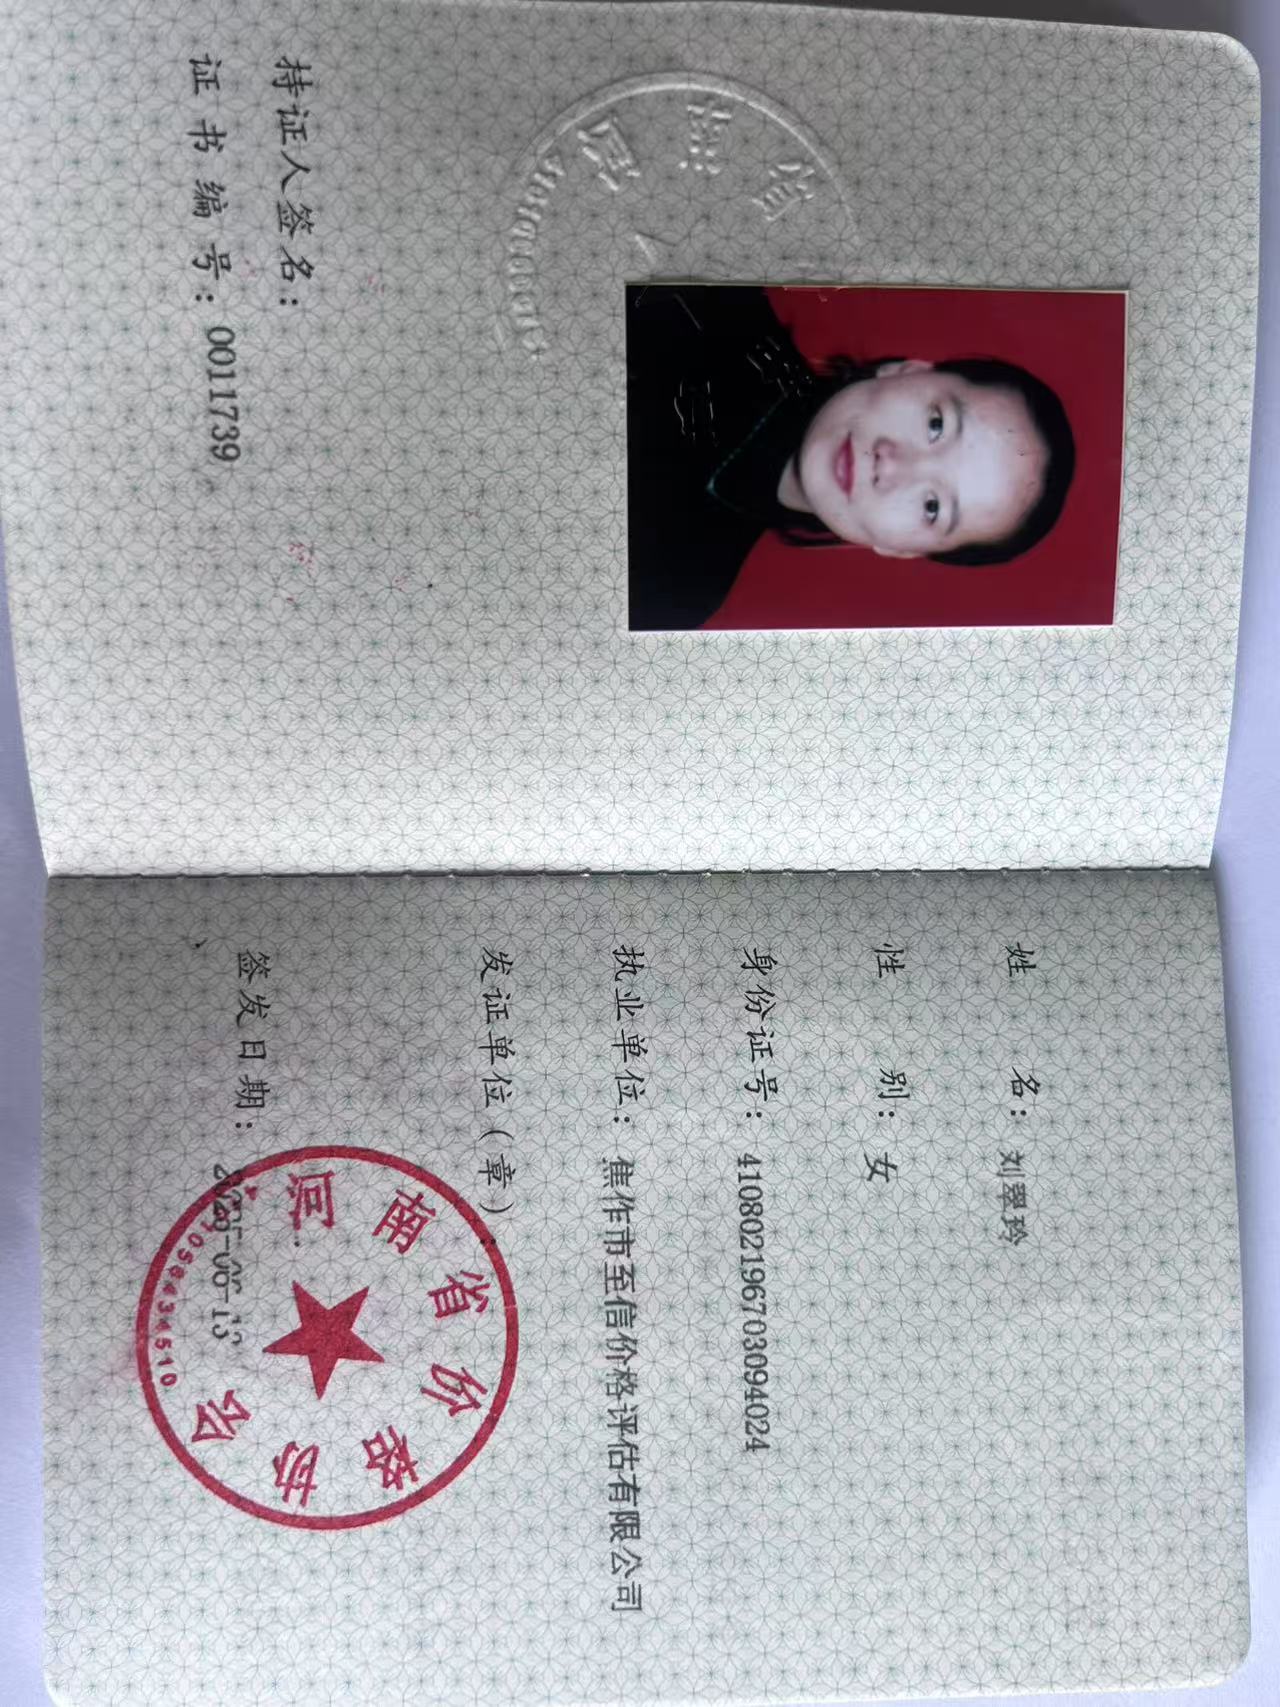 持证人签名：
证书编号：0011739
姓名：刘翠玲
性别：女
身份证号：410802196703094024
执业单位：焦作市至信价格评估有限公司
发证单位（章）：
签发日期：
河南省价格协会